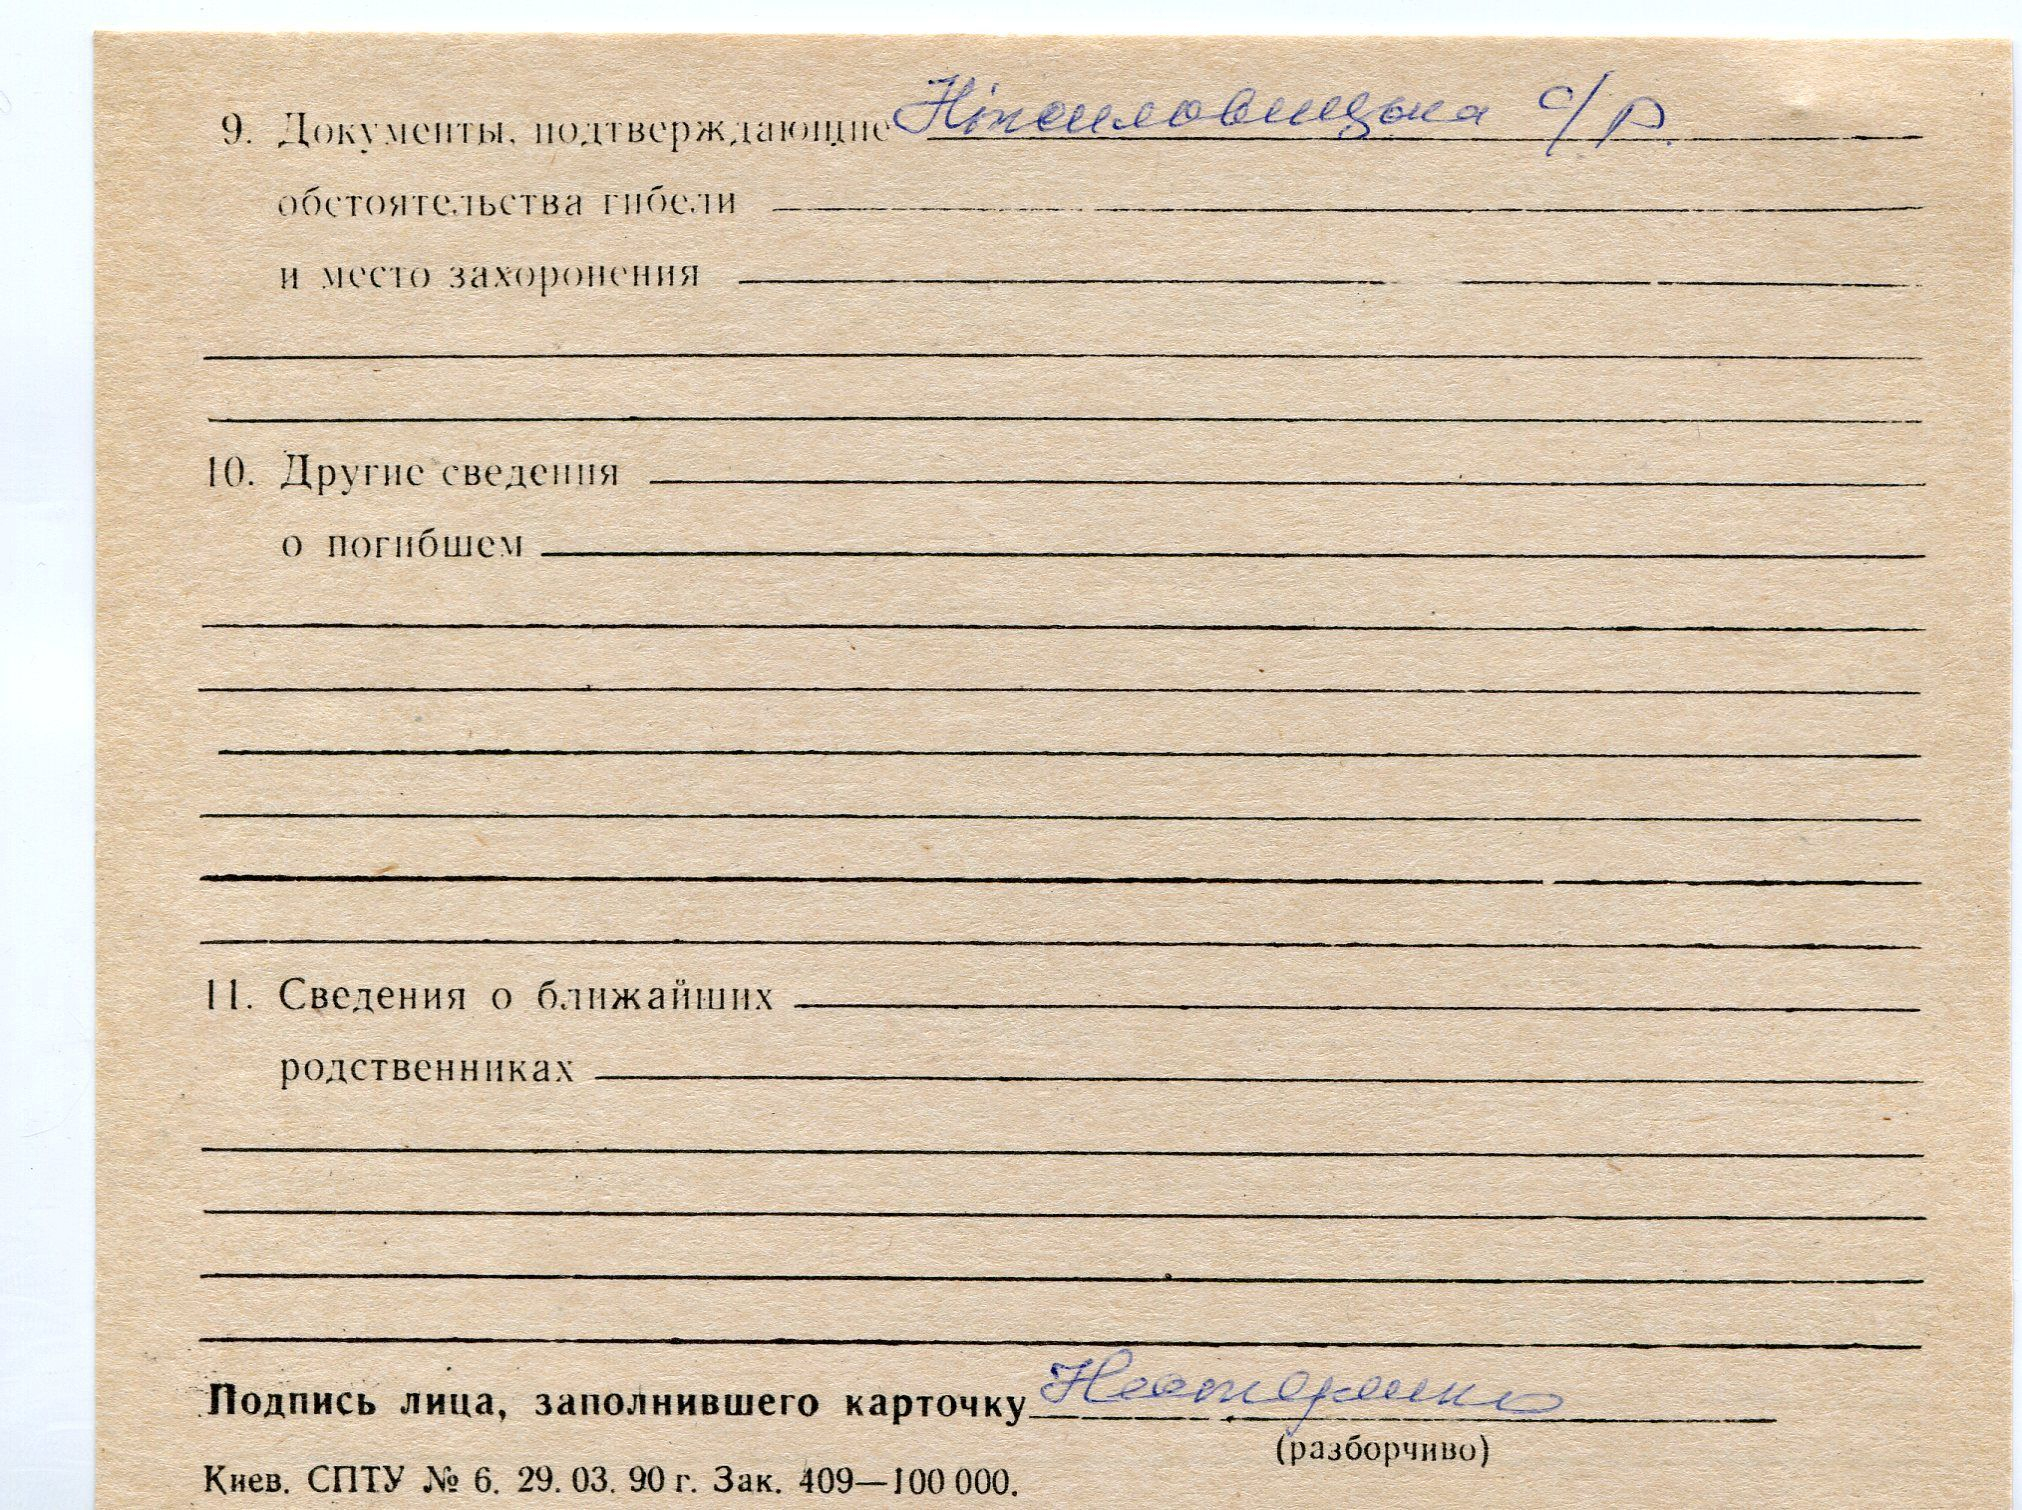 9. Документы, подтверждающие с/р.
обстоятельства гибели
и место захоронения
10. Другие сведения
о погибшем
11. Сведения о ближайших
родственниках
Подпись лица, заполнившего карточку
(разборчиво)
Киев. СПТУ № 6. 29. 03. 90 г. Зак. 409—100 000.